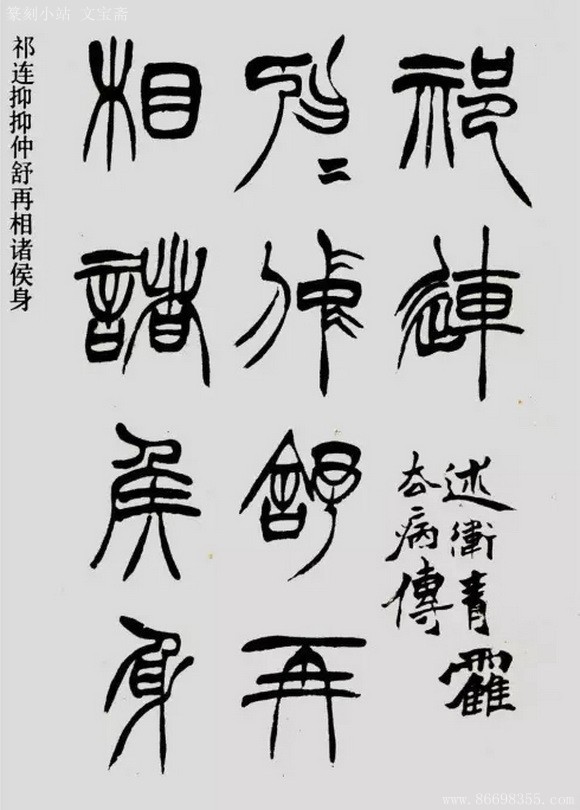 篆刻小站 文宝斋
祁連
述衛青霍
去病傳
抑〻仲舒再
相諸侯身
祁连抑抑仲舒再相诸侯身
www.86698355.com